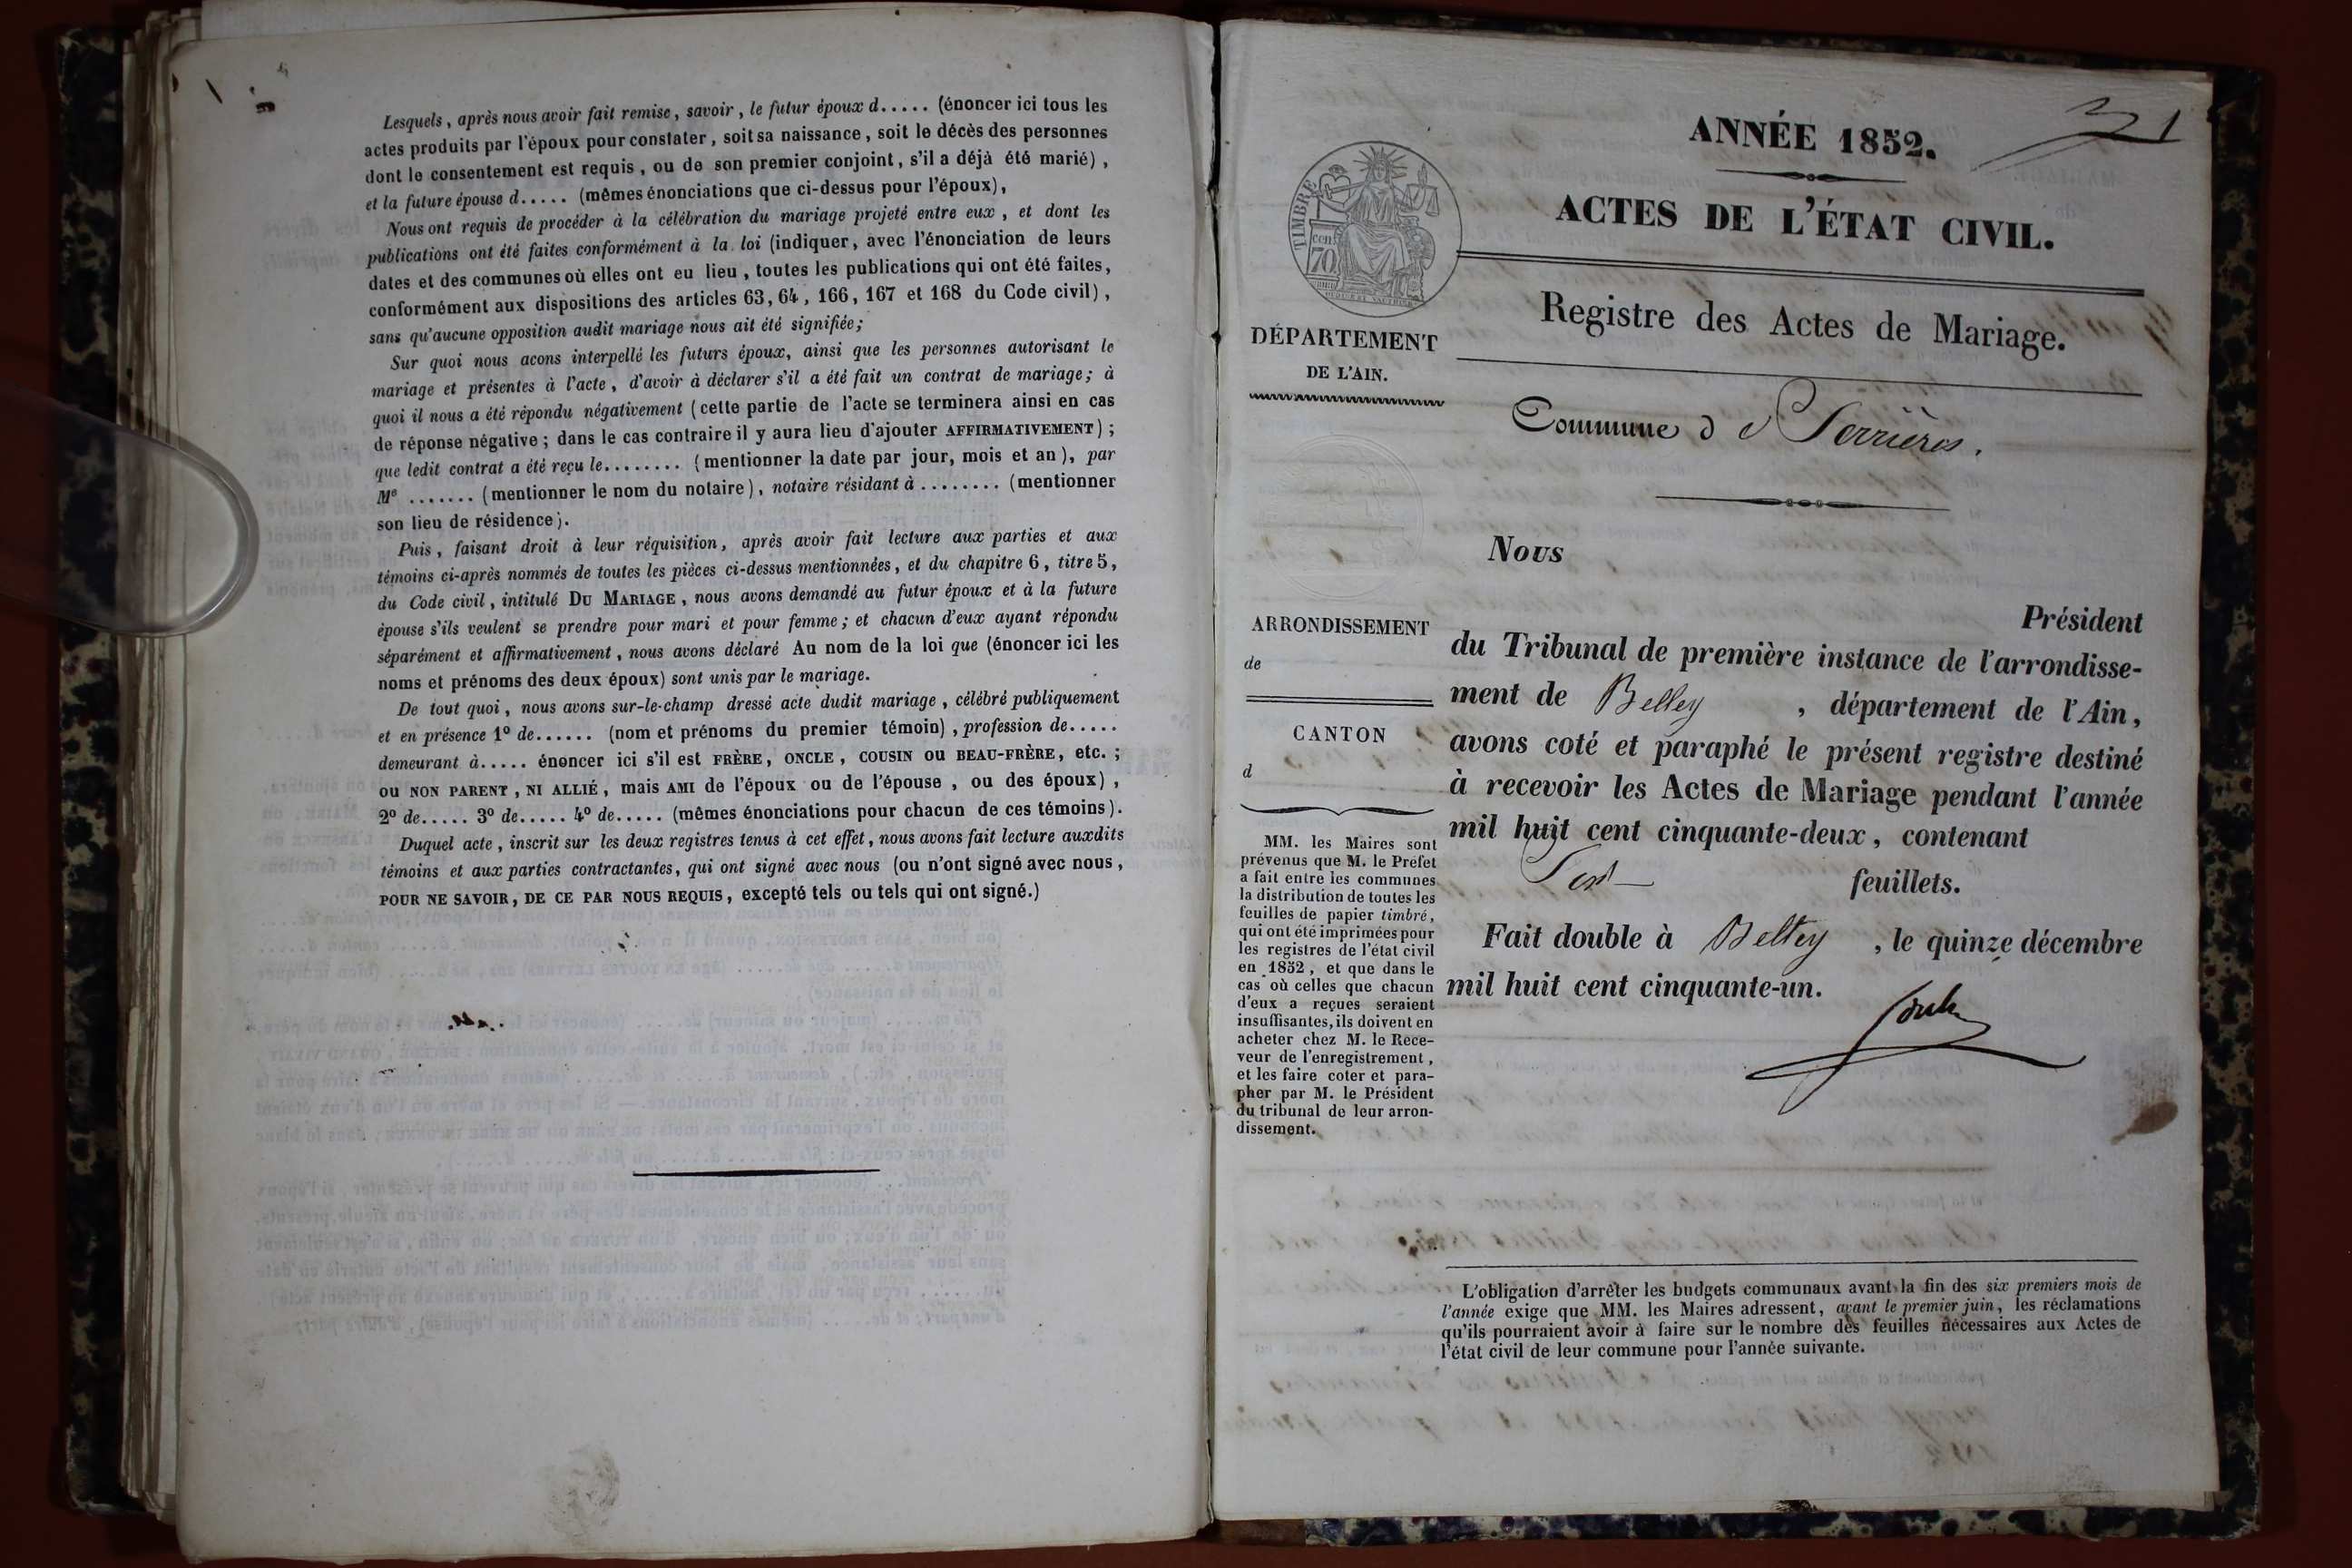 Lesquels, après nous avoir fait remise, savoir, le futur époux d..... (énoncer ici tous les
actes produits par l'époux pour constater, soit sa naissance, soit le décès des personnes
dont le consentement est requis, ou de son premier conjoint, s'il a déjà été marié),
et la future épouse d..... (mêmes énonciations que ci-dessus pour l'époux),
Nous ont requis de procéder à la célébration du mariage projeté entre eux, et dont les
publications ont été faites conformément à la loi (indiquer, avec l'énonciation de leurs
dates et des communes où elles ont eu lieu, toutes les publications qui ont été faites,
conformément aux dispositions des articles 63, 64, 166, 167 et 168 du Code civil),
sans qu'aucune opposition audit mariage nous ait été signifiée;
Sur quoi nous acons interpellé les futurs époux, ainsi que les personnes autorisant le
mariage et présentes à l'acte, d'avoir à déclarer s'il a été fait un contrat de mariage; à
quoi il nous a été répondu négativement (cette partie de l'acte se terminera ainsi en cas
de réponse négative; dans le cas contraire il y aura lieu d'ajouter AFFIRMATIVEMENT);
que ledit contrat a été reçu le........ (mentionner la date par jour, mois et an), par
Me ....... (mentionner le nom du notaire), notaire résidant à ........ (mentionner
son lieu de résidence).
Puis, faisant droit à leur réquisition, après avoir fait lecture aux parties et aux
témoins ci-après nommés de toutes les pièces ci-dessus mentionnées, et du chapitre 6, titre 5,
du Code civil, intitulé DU MARIAGE, nous avons demandé au futur époux et à la future
épouse s'ils veulent se prendre pour mari et pour femme; et chacun d'eux ayant répondu
séparément et affirmativement, nous avons déclaré Au nom de la loi que (énoncer ici les
noms et prénoms des deux époux) sont unis par le mariage.
De tout quoi, nous avons sur-le-champ dressé acte dudit mariage, célébré publiquement
et en présence 1º de...... (nom et prénoms du premier témoin), profession de.....
demeurant à..... énoncer ici s'il est FRÈRE, ONCLE, COUSIN OU BEAU-FRÈRE, etc.;
ou NON PARENT, NI ALLIÉ, mais AMI de l'époux ou de l'épouse, ou des époux),
2º de..... 3º de..... 4º de..... (mêmes énonciations pour chacun de ces témoins).
Duquel acte, inscrit sur les deux registres tenus à cet effet, nous avons fait lecture auxdits
témoins et aux parties contractantes, qui ont signé avec nous (ou n'ont signé avec nous,
POUR NE SAVOIR, DE CE PAR NOUS REQUIS, excepté tels ou tels qui ont signé.)
ANNÉE 1852.
ACTES DE L'ÉTAT CIVIL.
TIMBRE
cen.
70
Registre des Actes de Mariage.
DÉPARTEMENT
DE L'AIN.
Commune de Serrières.
Nous
Président
du Tribunal de première instance de l'arrondisse-
ment de Belley, département de l'Ain,
avons coté et paraphé le présent registre destiné
à recevoir les Actes de Mariage pendant l'année
mil huit cent cinquante-deux, contenant
feuillets.
Fait double à Belley, le quinze décembre
mil huit cent cinquante-un.
ARRONDISSEMENT
de
CANTON
d
MM. les Maires sont
prévenus que M. le Préfet
a fait entre les communes
la distribution de toutes les
feuilles de papier timbré,
qui ont été imprimées pour
les registres de l'état civil
en 1852, et que dans le
cas où celles que chacun
d'eux a reçues seraient
insuffisantes, ils doivent en
acheter chez M. le Rece-
veur de l'enregistrement,
et les faire coter et para-
pher par M. le Président
du tribunal de leur arron-
dissement.
L'obligation d'arrêter les budgets communaux avant la fin des six premiers mois de
l'année exige que MM. les Maires adressent, avant le premier juin, les réclamations
qu'ils pourraient avoir à faire sur le nombre des feuilles nécessaires aux Actes de
l'état civil de leur commune pour l'année suivante.